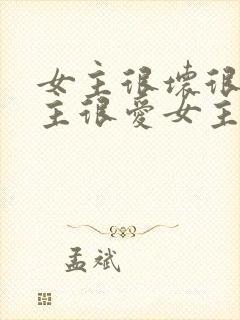 女主很坏很
主很爱女主
孟斌